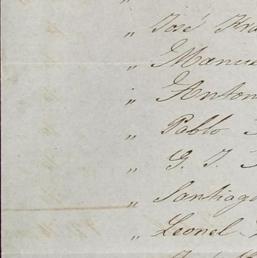 " José
" Manue
" Anton
" Pablo
" G. J.
" Santiago
" Leonel